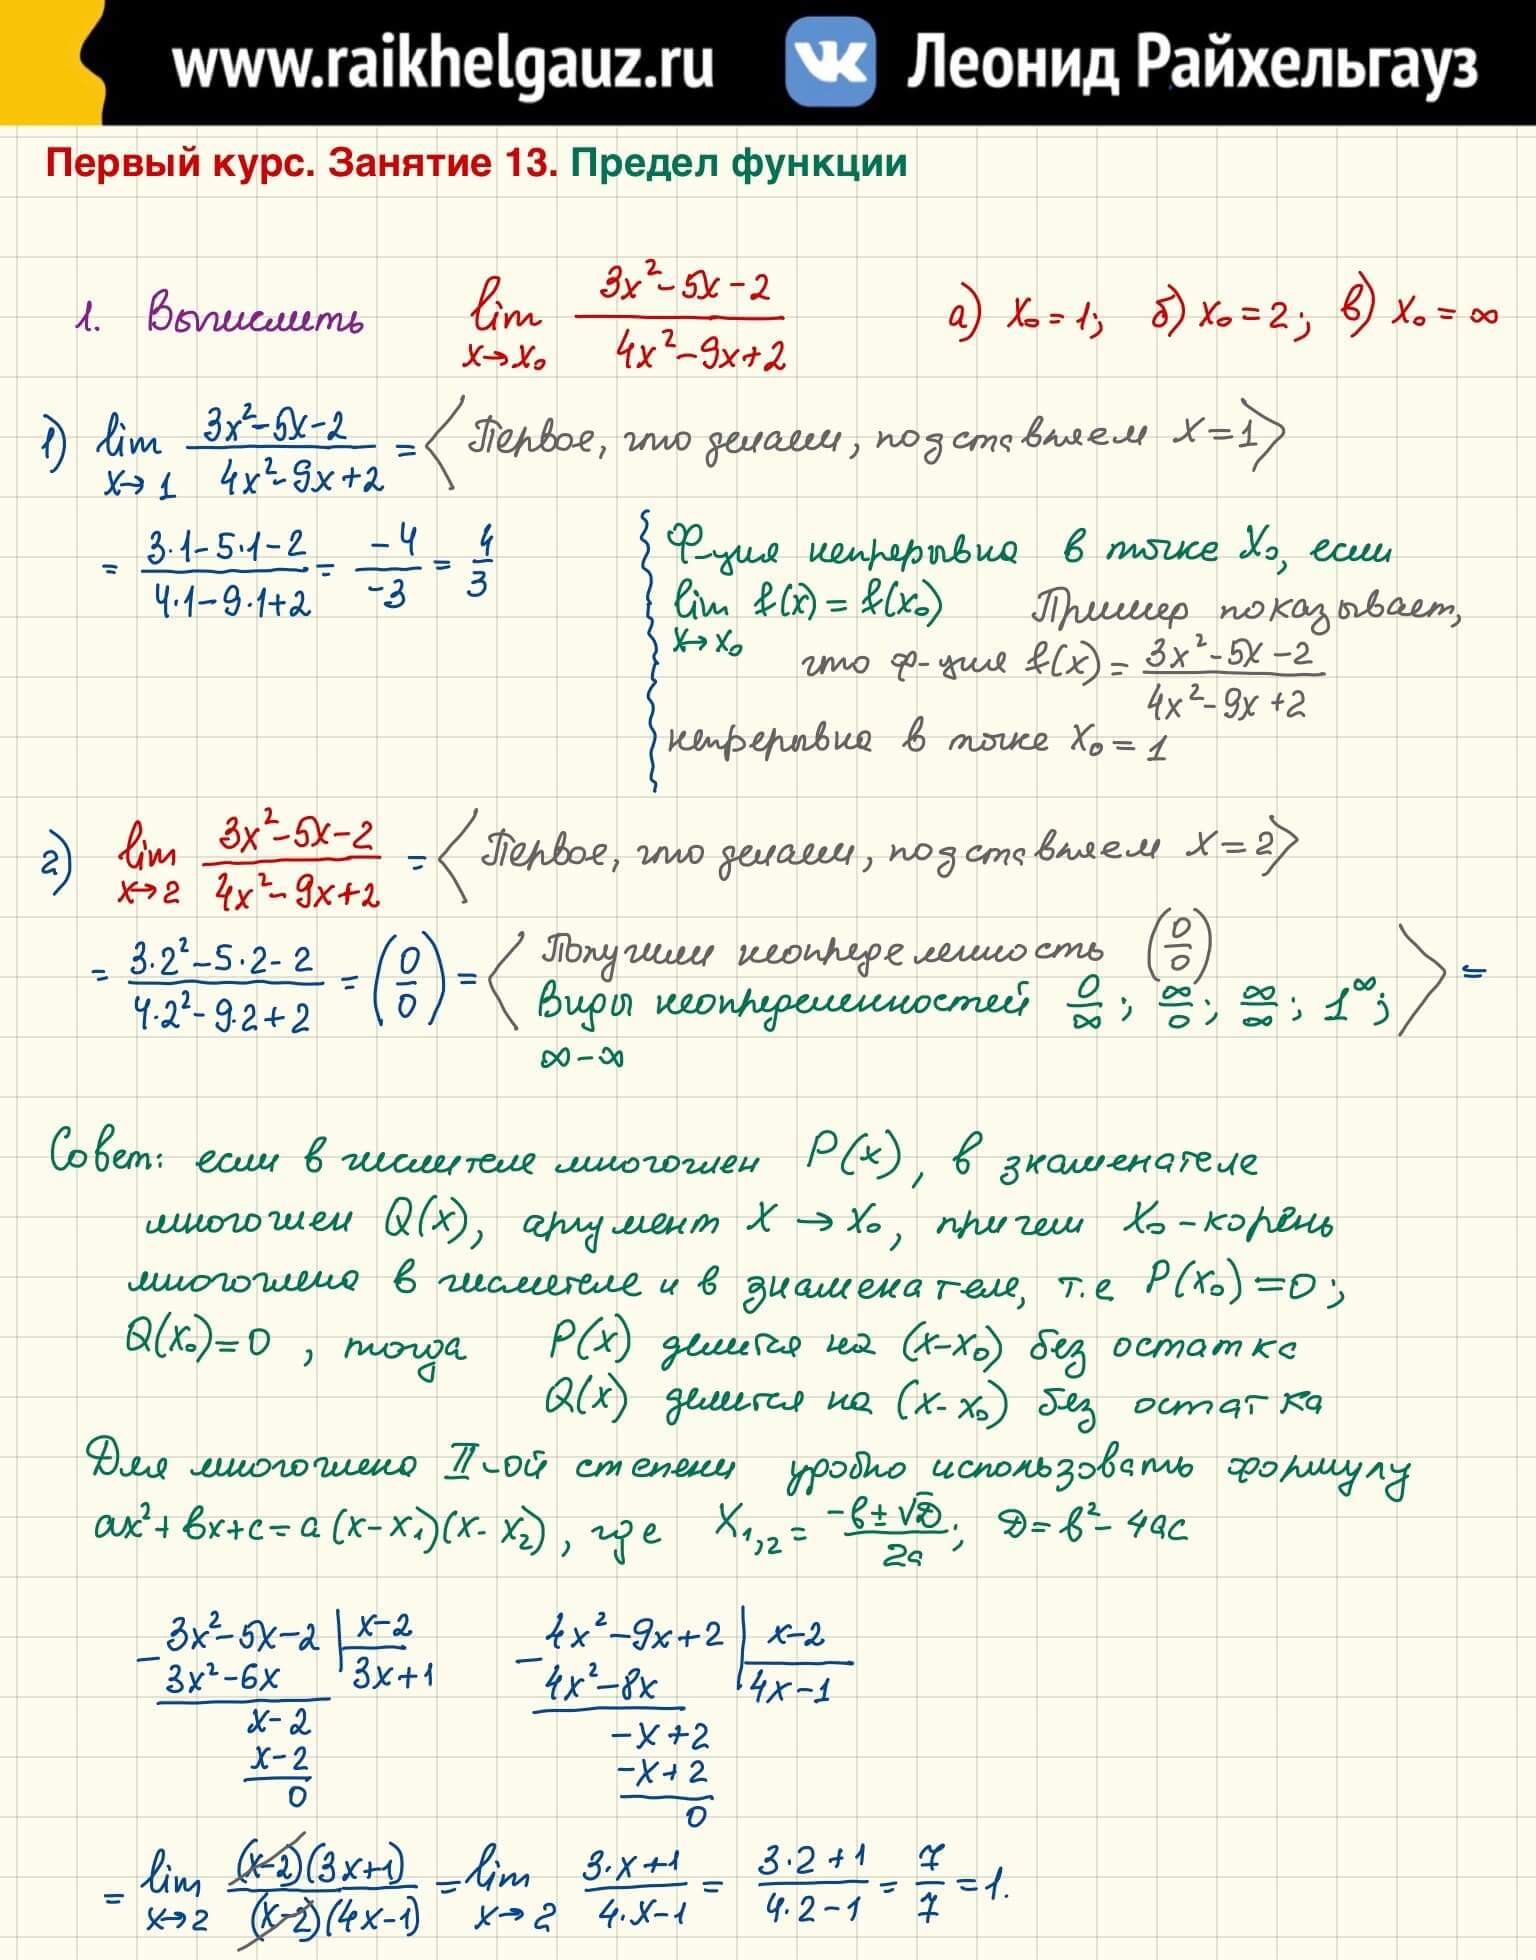 www.raikhelgauz.ru Леонид Райхельгауз
Первый курс. Занятие 13. Предел функции
1. Вычислить lim x→x₀ (3x²-5x-2)/(4x²-9x+2) а) x₀=1; б) x₀=2; в) x₀=∞
1) lim x→1 (3x²-5x-2)/(4x²-9x+2) = ⟨Первое, что делаем, подставляем x=1⟩
= (3·1-5·1-2)/(4·1-9·1+2) = -4/-3 = 4/3
Ф-ция непрерывна в точке x₀, если
lim x→x₀ f(x) = f(x₀) Пример показывает,
что ф-ция f(x) = (3x²-5x-2)/(4x²-9x+2)
непрерывна в точке x₀=1
2) lim x→2 (3x²-5x-2)/(4x²-9x+2) = ⟨Первое, что делаем, подставляем x=2⟩
= (3·2²-5·2-2)/(4·2²-9·2+2) = (0/0) = ⟨Получили неопределенность (0/0)
Виды неопределенностей 0/∞; ∞/0; ∞/∞; 1^∞;⟩ =
∞-∞
Совет: если в числителе многочлен P(x), в знаменателе
многочлен Q(x), аргумент x→x₀, причем x₀-корень
многочлена в числителе и в знаменателе, т.е P(x₀)=0;
Q(x₀)=0, тогда P(x) делится на (x-x₀) без остатка
Q(x) делится на (x-x₀) без остатка
Для многочлена II-ой степени удобно использовать формулу
ax²+bx+c=a(x-x₁)(x-x₂), где x₁,₂ = (-b±√D)/2a; D=b²-4ac
3x²-5x-2 | x-2 4x²-9x+2 | x-2
3x²-6x 3x+1 4x²-8x 4x-1
x-2 -x+2
x-2 -x+2
0 0
= lim x→2 (x-2)(3x+1)/(x-2)(4x-1) = lim x→2 (3·x+1)/(4·x-1) = (3·2+1)/(4·2-1) = 7/7 = 1.